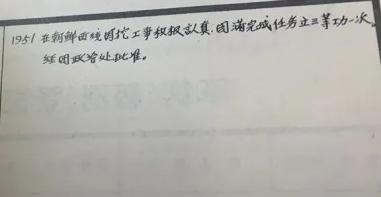 1951 在朝鲜西线因挖工事积极认真.圆满完成任务立三等功一次.
经团政治处批准。